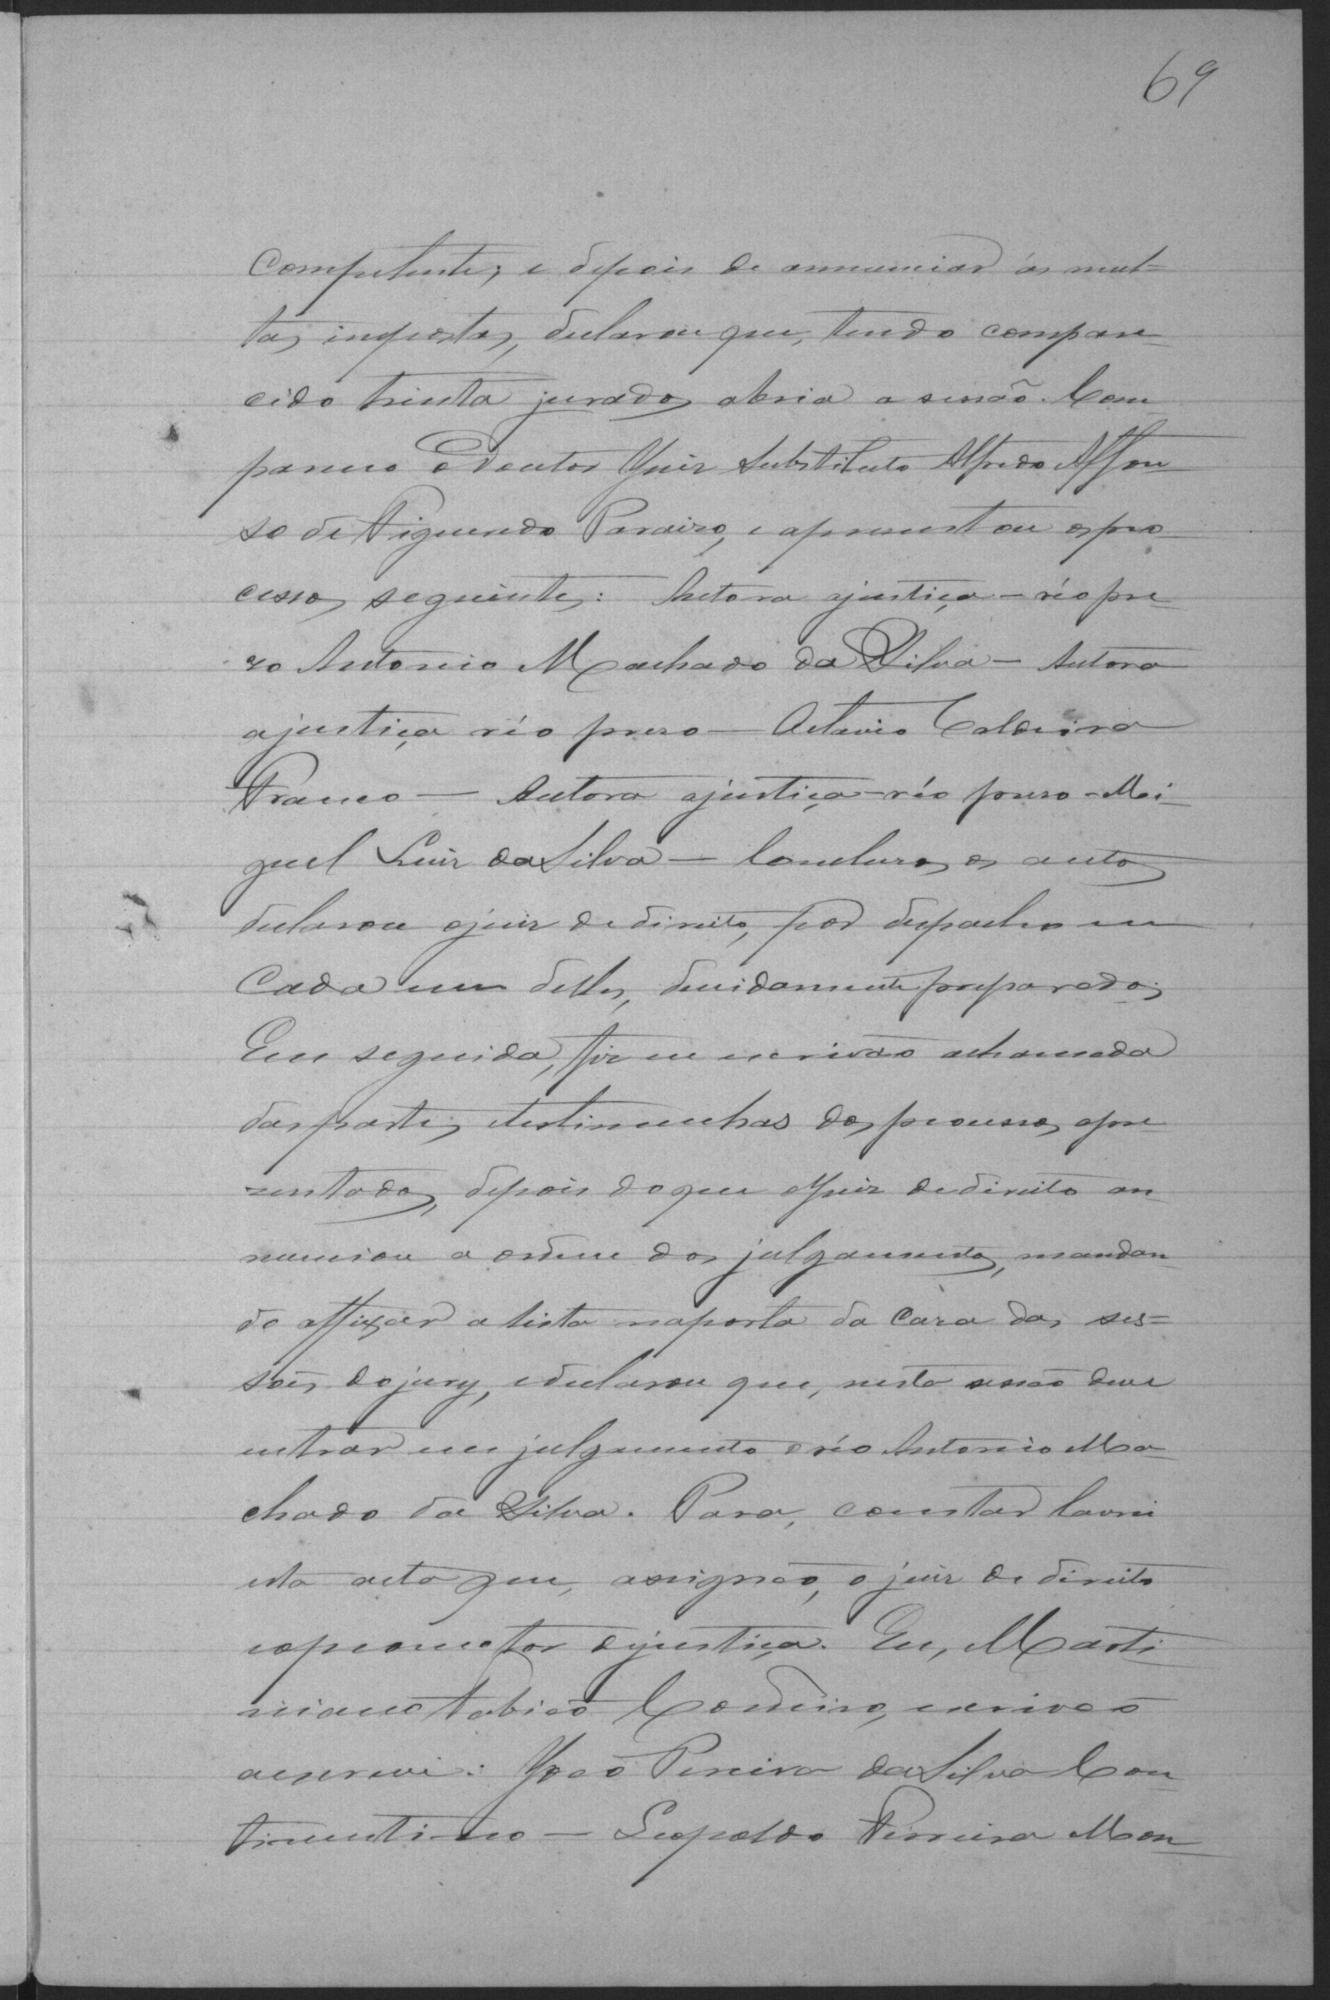 69
competente; e depois de annunciar as mul-
tas impostas, declarou que, tendo compare-
cido trinta jurados abria a sessão. Com
pareceo o Doutor Juiz Substituto Alfredo Affon
so de Figueiredo Paraizo, e apresentou os pro
cessos seguintes: Autora a justiça - réo pre
zo Antonio Machado da Silva - Autora
a justiça réo prezo - Octavio Caldeira
Franco - Autora a justiça - réo prezo - Mi
guel Luiz da Silva - Conclusos os autos
declarou o juiz de direito, por despacho em
cada um delles, devidamente preparados,
Em seguida, fiz eu escrivão a chamada
das partes, e testimunhas dos processos apre
zentados, depois do que o Juiz de direito an
nunciou a ordem dos julgamentos, mandan
do affixar a lista na porta da caza das ses=
sões do jury, e declarou que, nesta sessão deve
entrar em julgamento o réo Antonio Ma
chado da Silva. Para, constar lavrei
esta acta que, assignão, o juiz de direito
e o promotor de justiça. Eu, Marti
niano Fabião Cordeiro, escrivão
a escrevi. João Pereira da Silva Con
tinentino - Leopoldo Ferreira Mon